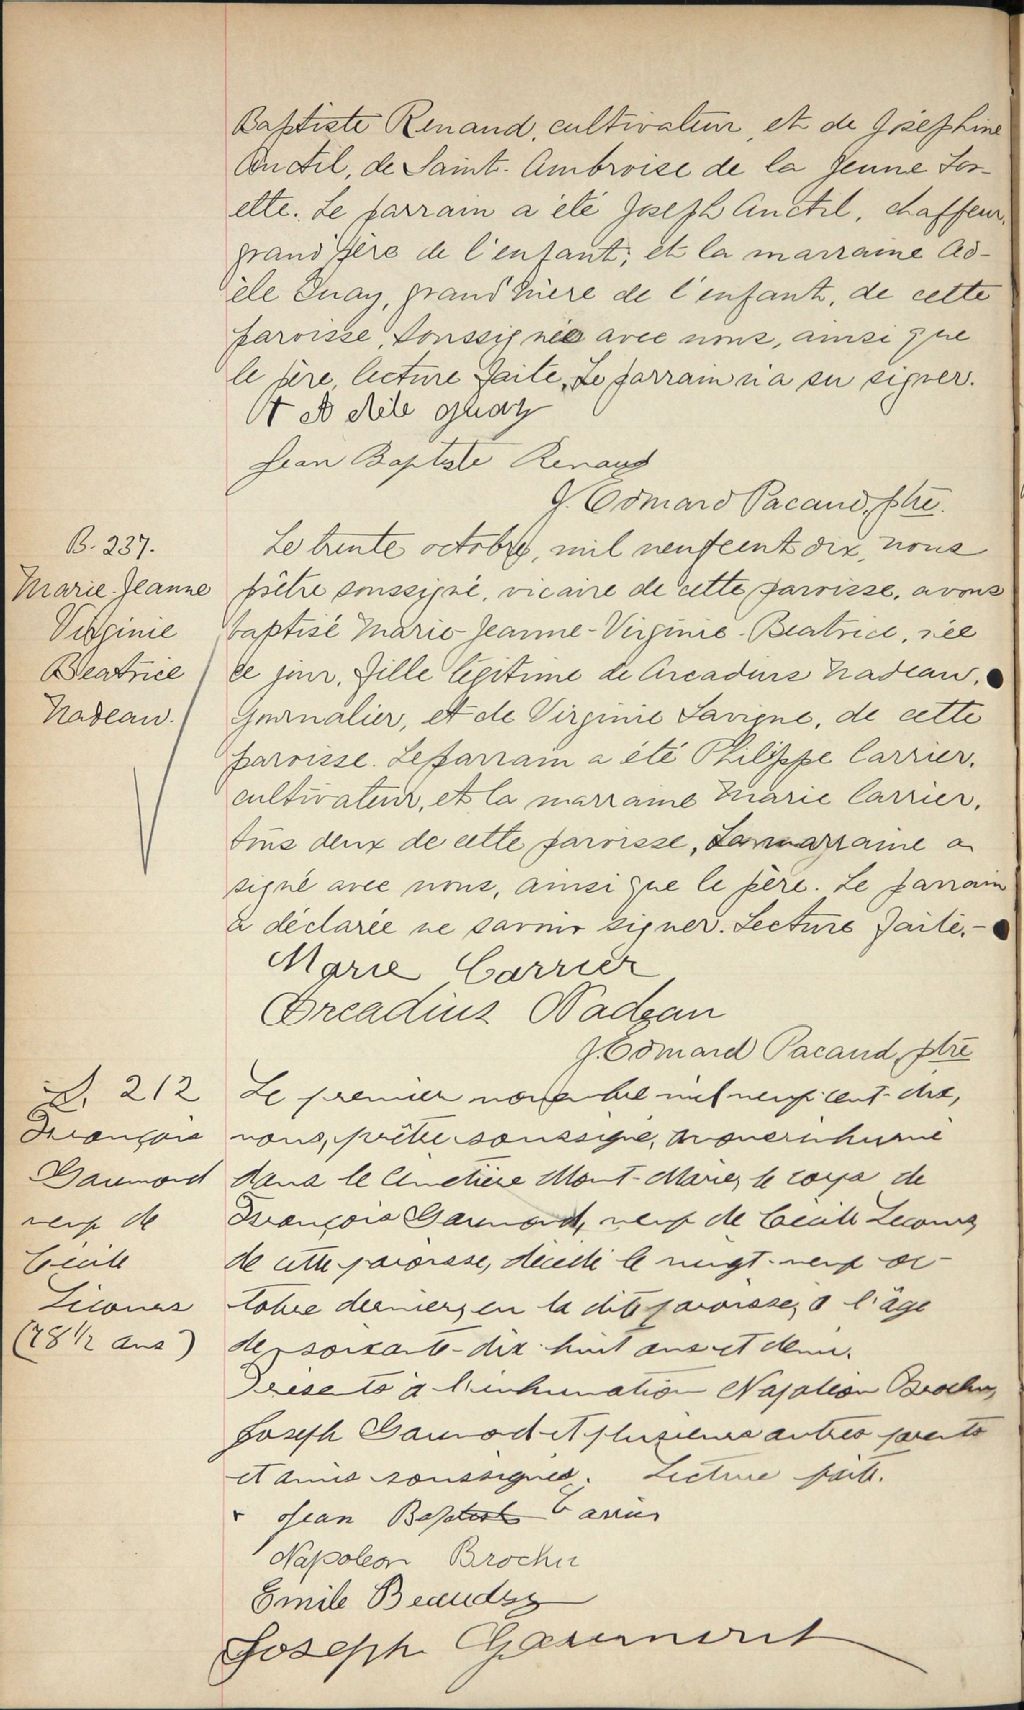 Baptiste Renaud, cultivateur, et de Joséphine
Anctil, de Saint-Ambroise de la Jeune Lor-
ette. Le parrain a été Joseph Anctil, chaffeur,
grand'père de l'enfant; et la marraine Ad-
èle Guay, grand'mère de l'enfant, de cette
paroisse, soussignée avec nous, ainsi que
le père, lecture faite. Le parrain n'a su signer.
+ Adèle Guay
Jean Baptiste Renaud
J. Edmard Pacaud, ptre.
B. 237.
Marie-Jeanne
Virginie
Beatrice
Nadeau.
Le trente octobre, mil neuf cent dix, nous
prêtre soussigné, vicaire de cette paroisse, avons
baptisé Marie-Jeanne-Virginie-Beatrice, née
ce jour, fille légitime de Arcadius Nadeau,
journalier, et de Virginie Lavigne, de cette
paroisse. Le parrain a été Philippe Carrier,
cultivateur, et la marraine Marie Carrier,
tous deux de cette paroisse, La marraine a
signé avec nous, ainsi que le père. Le parrain
a déclarée ne savoir signer. Lecture faite.-
Marie Carrier
Arcadius Nadeau
J. Edmard Pacaud, ptre
S. 212
François
Gaumond
veuf de
Cécile
Lecours
(78 1/2 ans)
Le premier novembre mil neuf cent-dix,
nous, prêtre soussigné, avons inhumé
dans le Cimetière Mont-Marie, le corps de
François Gaumond, veuf de Cécile Lecours
de cette paroisse, décédé le vingt-neuf oc-
tobre dernier, en la dite paroisse, à l'âge
de soixante-dix-huit ans et demi.
Présents à l'inhumation Napoléon Brochu,
Joseph Gaumond et plusieurs autres parents
et amis soussignés. Lecture faite.
+ Jean Baptiste Carrier
Napoleon Brochu
Emile Beaudry
Joseph Gaumont